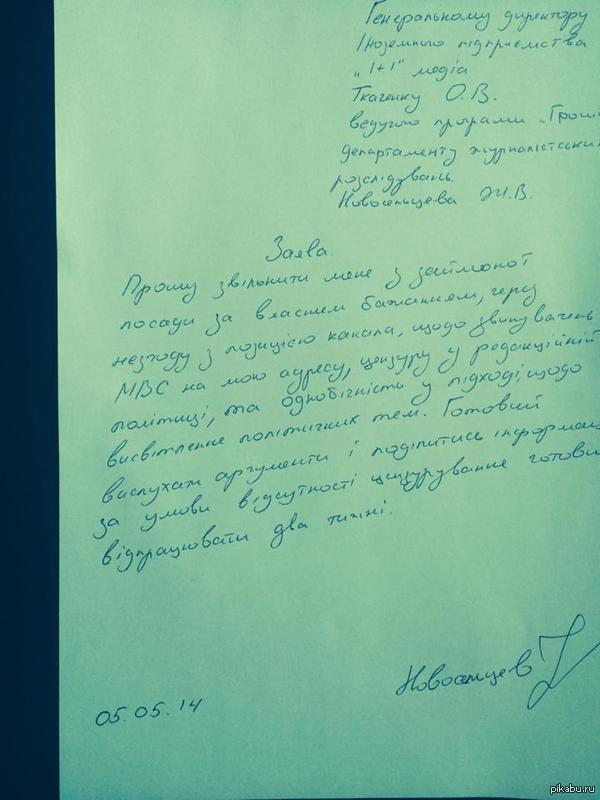 Генеральному директору
Іноземного підприємства
„1+1" медіа
Ткаченку О.В.
ведучого програми „Гроші
департаменту журналістських
розслідувань
Новосельцева Ж.В.
Заява.
Прошу звільнити мене з займаної
посади за власним бажанням, через
незгоду з позицією канала, щодо звинувачень
МВС на мою адресу, цензуру у редакційній
політиці, та однобічність у підході, щодо
висвітлення політичних тем. Готовий
вислухати аргументи і поділитись інформац
за умови відсутності цензурування готовий
відпрацювати два тижні.
Новосельцев
05.05.14
pikabu.ru